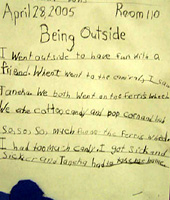 April 28, 2005 Room 110
Being Outside
I Went outside to have fun with a
friend. When I went to the carnival, I saw
Taneha. We both went on the ferris wheel.
We ate cotton candy and pop corn and had
so, so, so, so much fun on the ferris wheel.
I had too much candy. I got sick and
sicker and Taneha had to